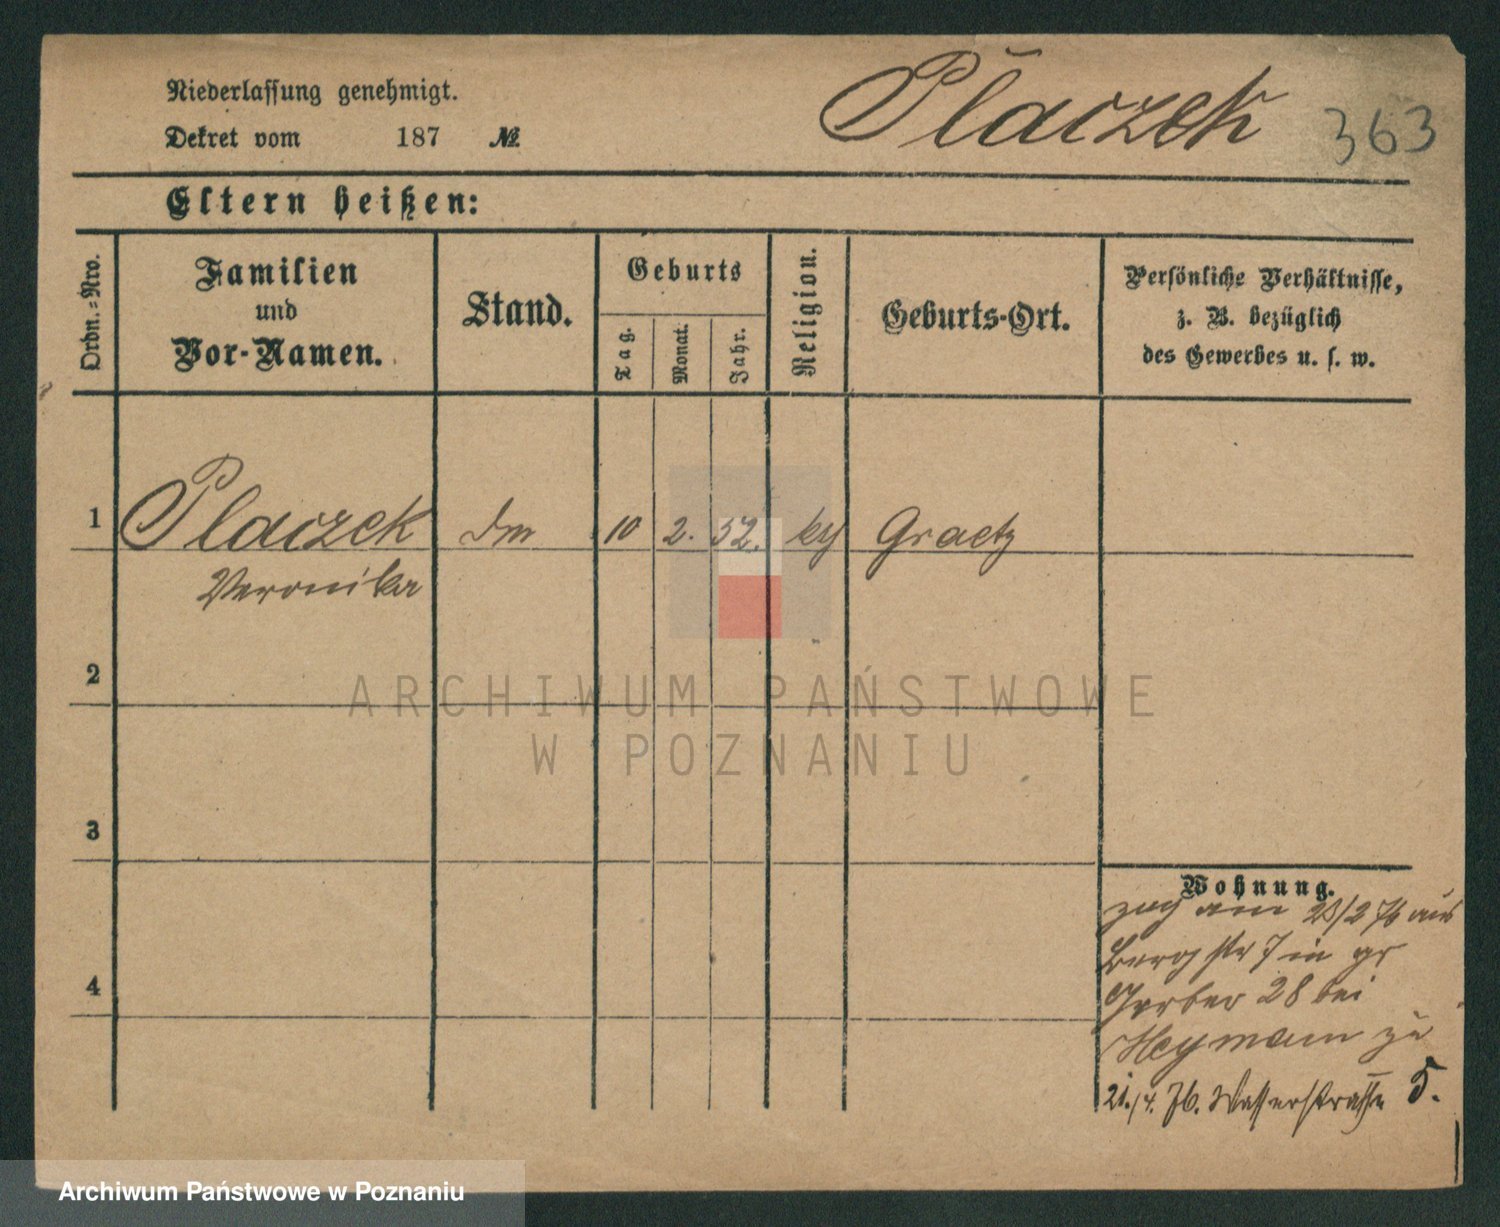 Niederlassung genehmigt.
Placzek 363
Dekret vom 187 №
Eltern heißen:
Ordn.=Nro.
Familien
und
Vor-Namen.
Stand.
Geburts
Tag.
Monat.
Jahr.
Religion.
Geburts-Ort.
Persönliche Verhältnisse,
z. B. bezüglich
des Gewerbes u. s. w.
1 Placzek 10 2. 52. Graetz
Veronika
2
ARCHIWUM PAŃSTWOWE
W POZNANIU
3
Wohnung.
zog am 23/2 76 aus
Bergstr 7 in gr
Gerber 28 bei
4
Heymann zu
21./4. 76. Wasserstrasse 5.
Archiwum Państwowe w Poznaniu